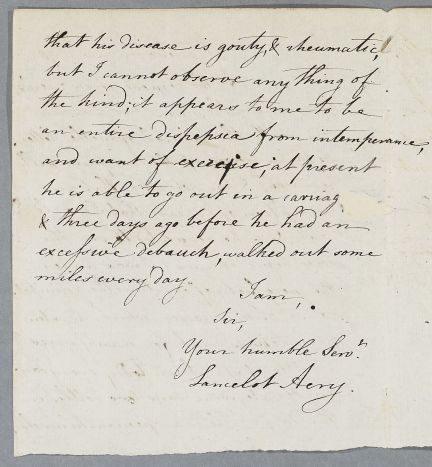 that his disease is gouty, & rheumatic,
but I cannot observe any thing of
the kind; it appears to me to be
an entire dispepsia from intemperance,
and want of exercise; at present
he is able to go out in a carriag
& three days ago before he had an
excessive debauch, walked out some
miles every day.
I am,
Sir,
Your humble Servt.
Lancelot Aery.